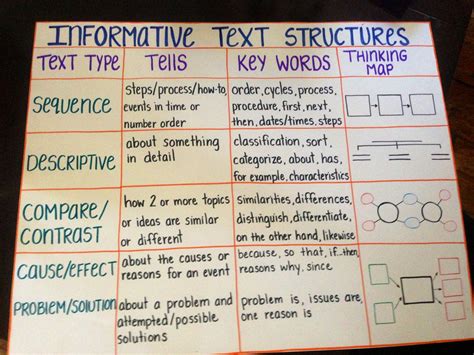 INFORMATIVE TEXT STRUCTURES
TEXT TYPE
TELLS
KEY WORDS
THINKING
MAP
SEQUENCE
steps/process/how-to,
events in time or
number order
order, cycles, process,
procedure, first, next,
then, dates/times, steps
DESCRIPTIVE
about something
in detail
classification, sort,
categorize, about, has,
for example, characteristics
COMPARE/
CONTRAST
how 2 or more topics
or ideas are similar
or different
similarities, differences,
distinguish, differentiate,
on the other hand, likewise
CAUSE/EFFECT
about the causes or
reasons for an event
because, so that, if...then,
reasons why, since
PROBLEM/SOLUTION
about a problem and
attempted/possible
solutions
problem is, issues are,
one reason is